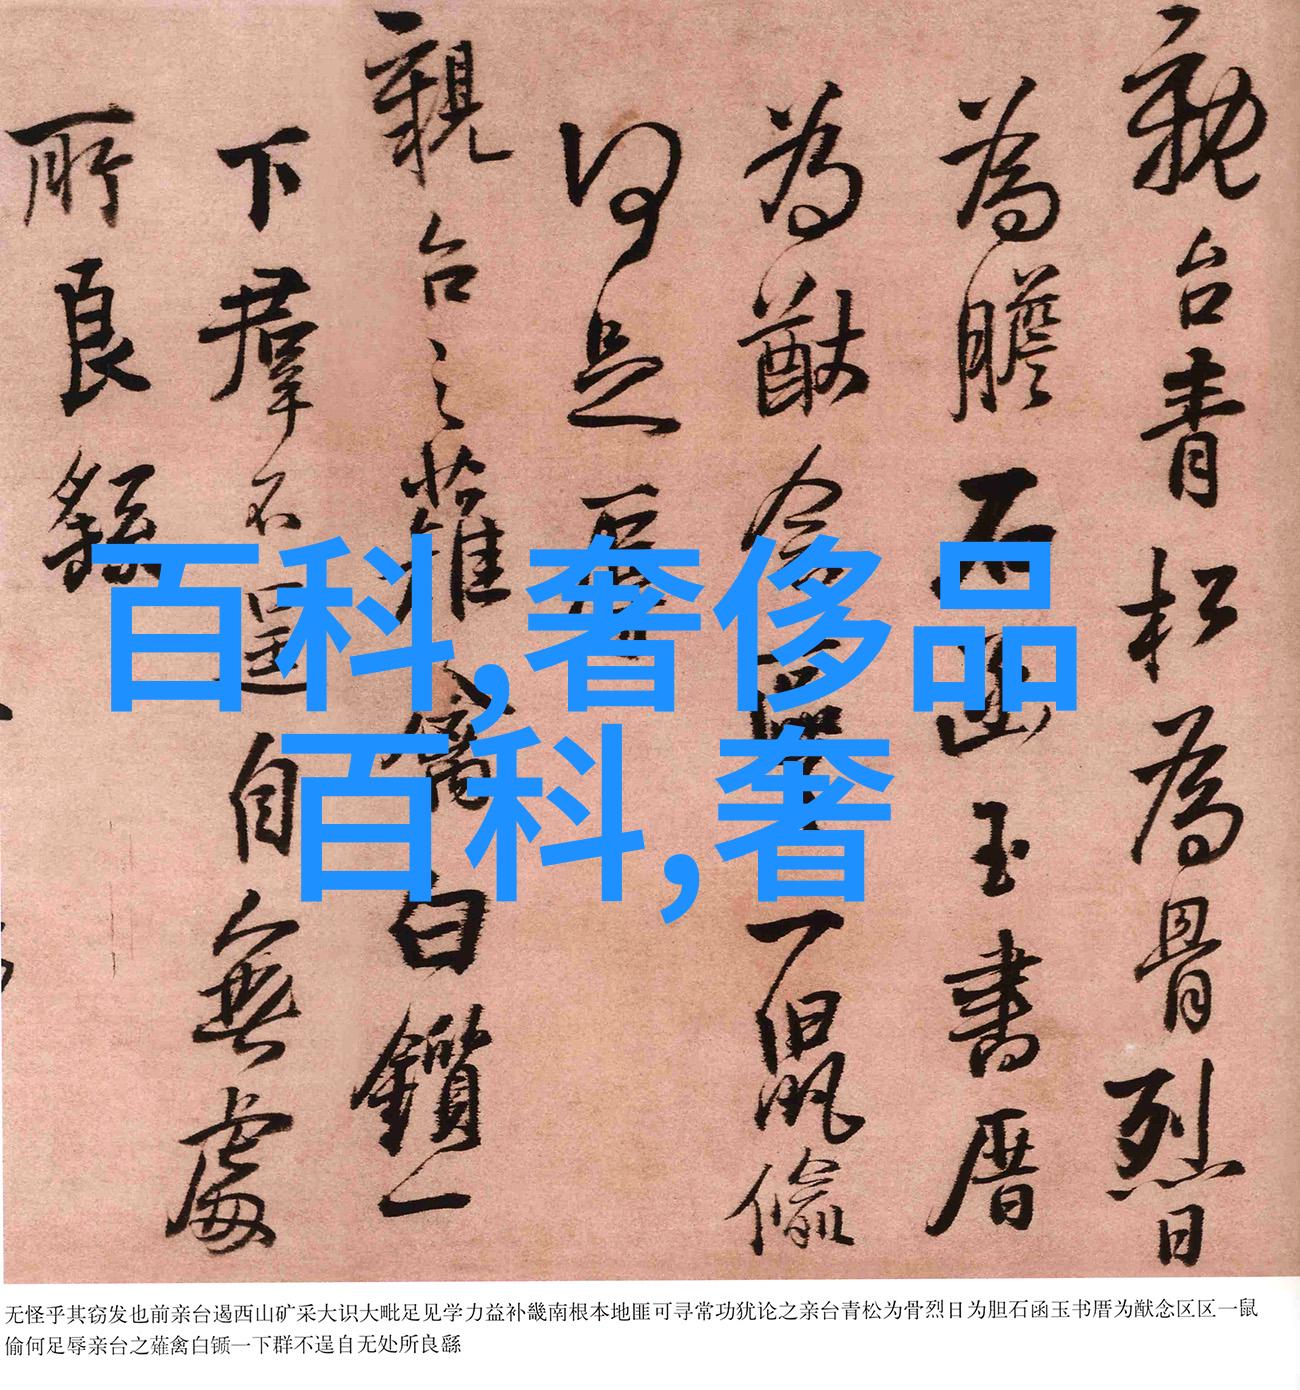 親台青松為骨烈日
為膽石函玉書厝
為猷念區區一鼠偷
何足辱
親台之薙禽白鑕一
下羣不逞自無處
所良繇
百科,奢侈品
百科,奢
无怪乎其窃发也前亲台遏西山矿采大识大毗足见学力益补畿南根本地匪可寻常功犹论之亲台青松为骨烈日为胆石函玉书厝为猷念区区一鼠
偷何足辱亲台之薙禽白锧一下群不逞自无处所良繇